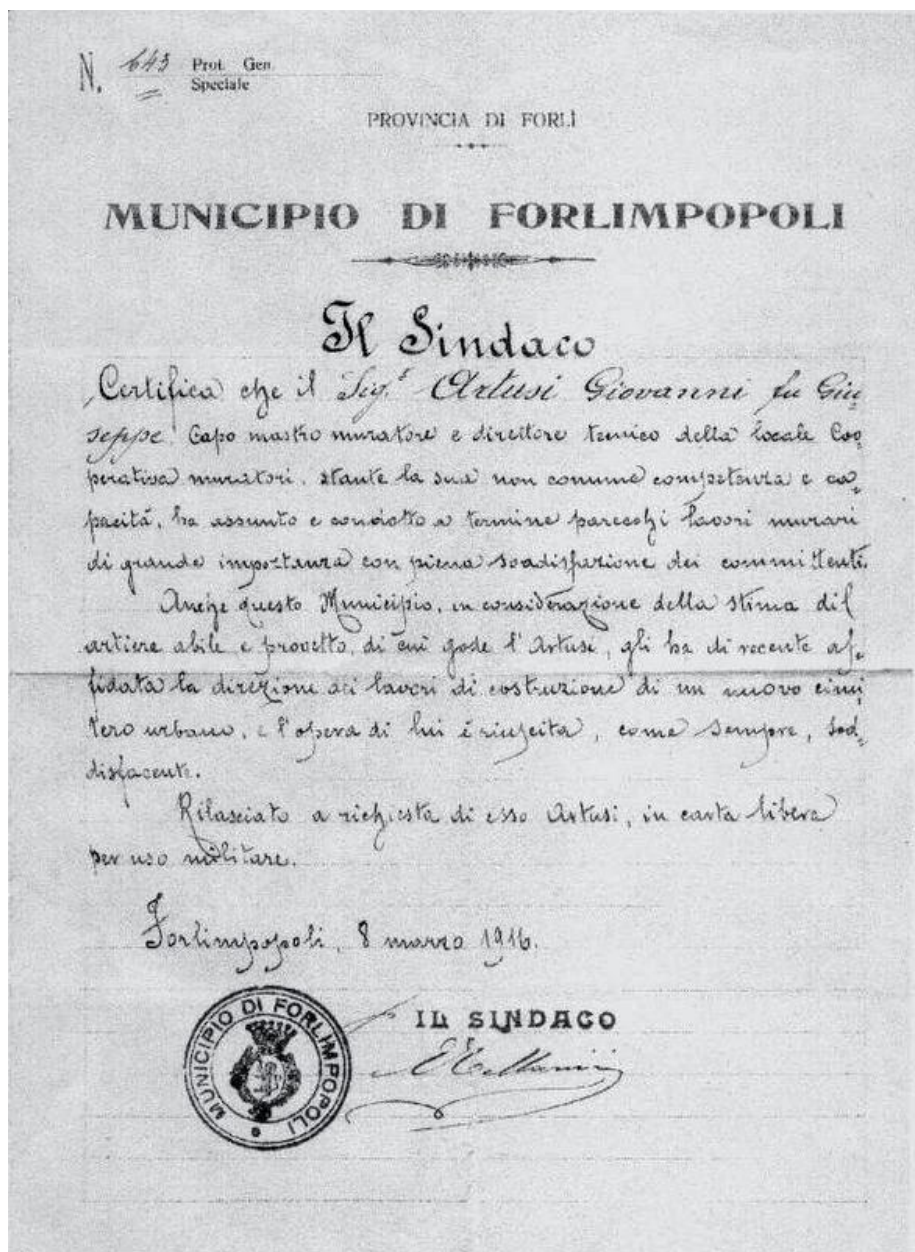 N. 643 Prot. Gen.
Speciale
PROVINCIA DI FORLÌ
MUNICIPIO DI FORLIMPOPOLI
Il Sindaco
Certifica che il Sig.r Artusi Giovanni fu Giu-
seppe Capo mastro muratore e direttore tecnico della locale Coo-
perativa muratori, stante la sua non comune competenza e ca-
pacità, ha assunto e condotto a termine parecchi lavori murari
di grande importanza con piena soadisfazione dei committenti.
Anche questo Municipio, in considerazione della stima di
artiere abile e provetto, di cui gode l'Artusi, gli ha di recente af-
fidata la direzione dei lavori di costruzione di un nuovo cimi
tero urbano, e l'opera di lui è riuscita, come sempre, sod-
disfacente.
Rilasciato a richiesta di esso Artusi, in carta libera
per uso militare.
Forlimpopoli, 8 marzo 1916.
IL SINDACO
MUNICIPIO DI FORLIMPOPOLI